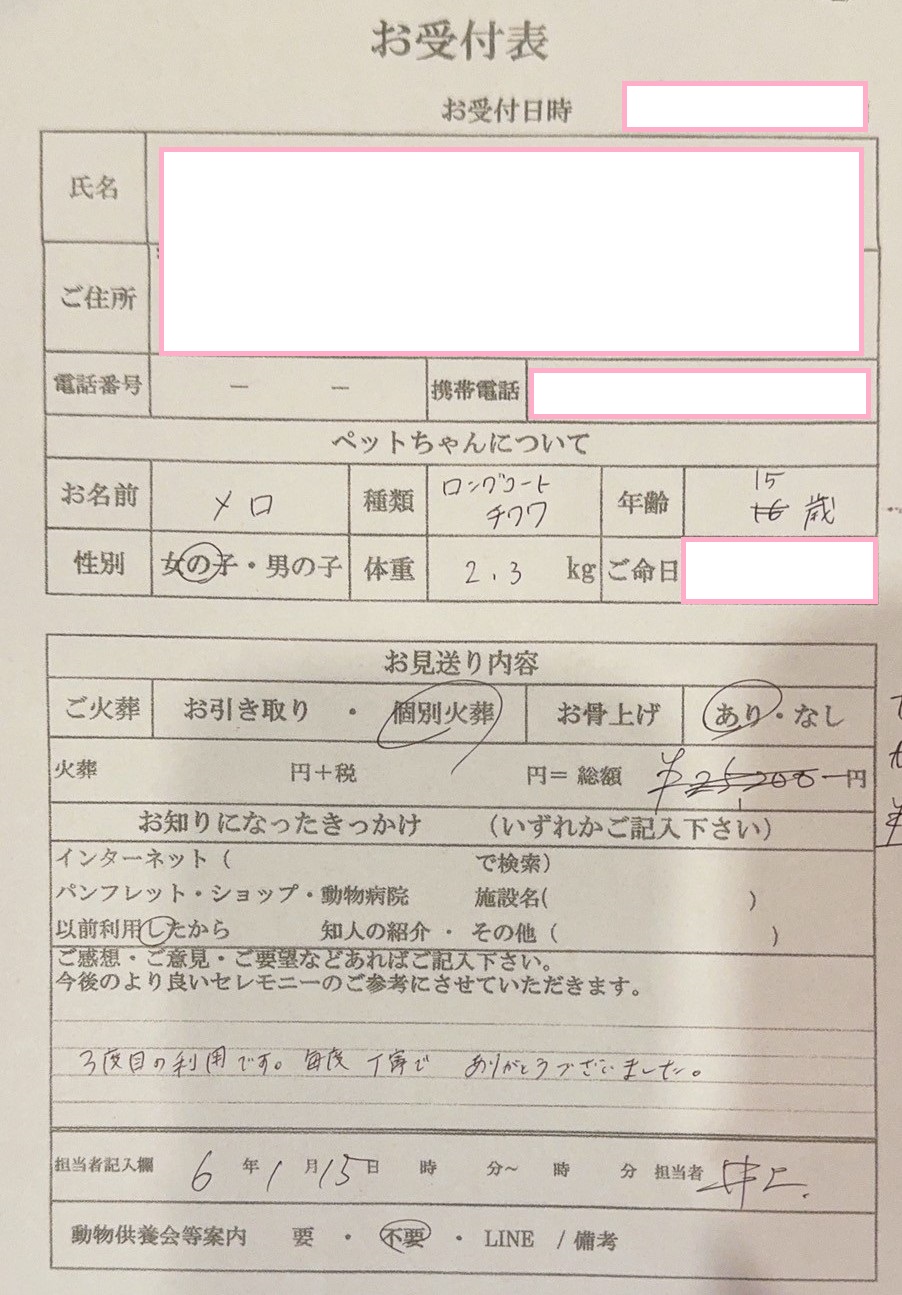 お受付表
お受付日時
氏名
ご住所
電話番号 － － 携帯電話
ペットちゃんについて
お名前 メロ 種類 ロングコートチワワ 年齢 15 16 歳
性別 女の子・男の子 体重 2.3 kg ご命日
お見送り内容
ご火葬 お引き取り ・ 個別火葬 お骨上げ あり・なし
火葬 円＋税 円＝ 総額 ¥ 円
お知りになったきっかけ （いずれかご記入下さい）
インターネット（ で検索）
パンフレット・ショップ・動物病院 施設名( )
以前利用したから 知人の紹介 ・ その他（ ）
ご感想・ご意見・ご要望などあればご記入下さい。
今後のより良いセレモニーのご参考にさせていただきます。
3度目の利用です。毎度 丁寧で ありがとうございました。
担当者記入欄 6 年 1 月 15 日 時 分～ 時 分 担当者 井上
動物供養会等案内 要 ・ 不要 ・ LINE / 備考